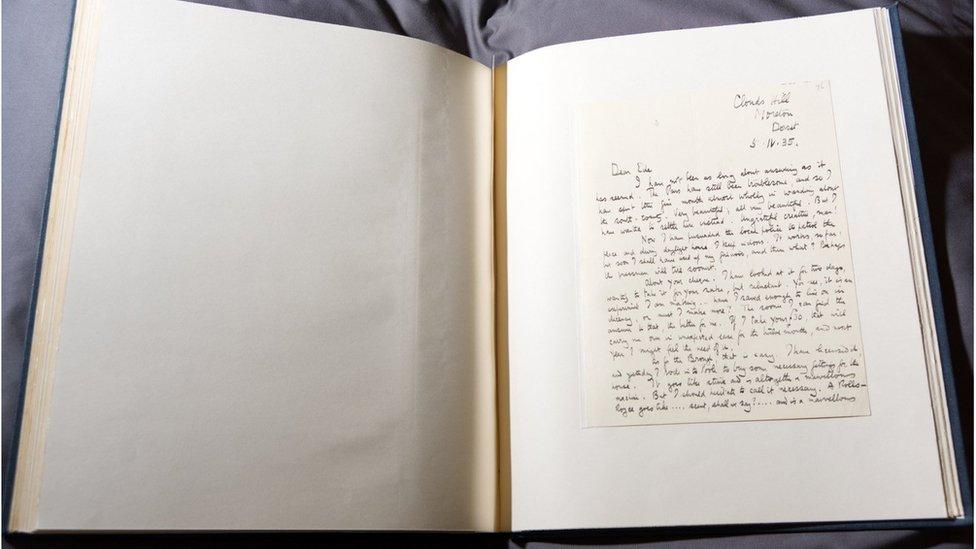 Clouds Hill
Moreton
Dorset
5. IV. 35.
Dear Ede
I have not been as long about answering as it
has seemed. The Press have still been troublesome, and so I
have spent the fine month almost wholly in wandering about
the south-country. Very beautiful, all very beautiful. But I
have wanted to settle here instead. Ungrateful creature, man!
Now I have persuaded the local police to patrol the
place and during daylight hours I keep indoors. It works, so far:
but soon I shall have used up my firewood, and then what? Perhaps
the pressmen will tire sooner.
About your cheque. I have looked at it for two days,
wanting to take it for your sake, but reluctant. You see, it is an
experiment I am making ... have I saved enough to live on in
decency, or must I make more? The sooner I can find the
answer to that, the better for me. If I take your £30, that will
carry me over in unexpected ease for the twelve months, and next
year I might feel the need of it.
As for the Brough, that is easy. I have licensed it,
and yesterday I rode in to Poole to buy some necessary fittings for the
house. It goes like stink and is altogether a marvellous
machine. But I should hesitate to call it necessary. A Rolls-
Royce goes like .... scent, shall we say? .... and is a marvellous